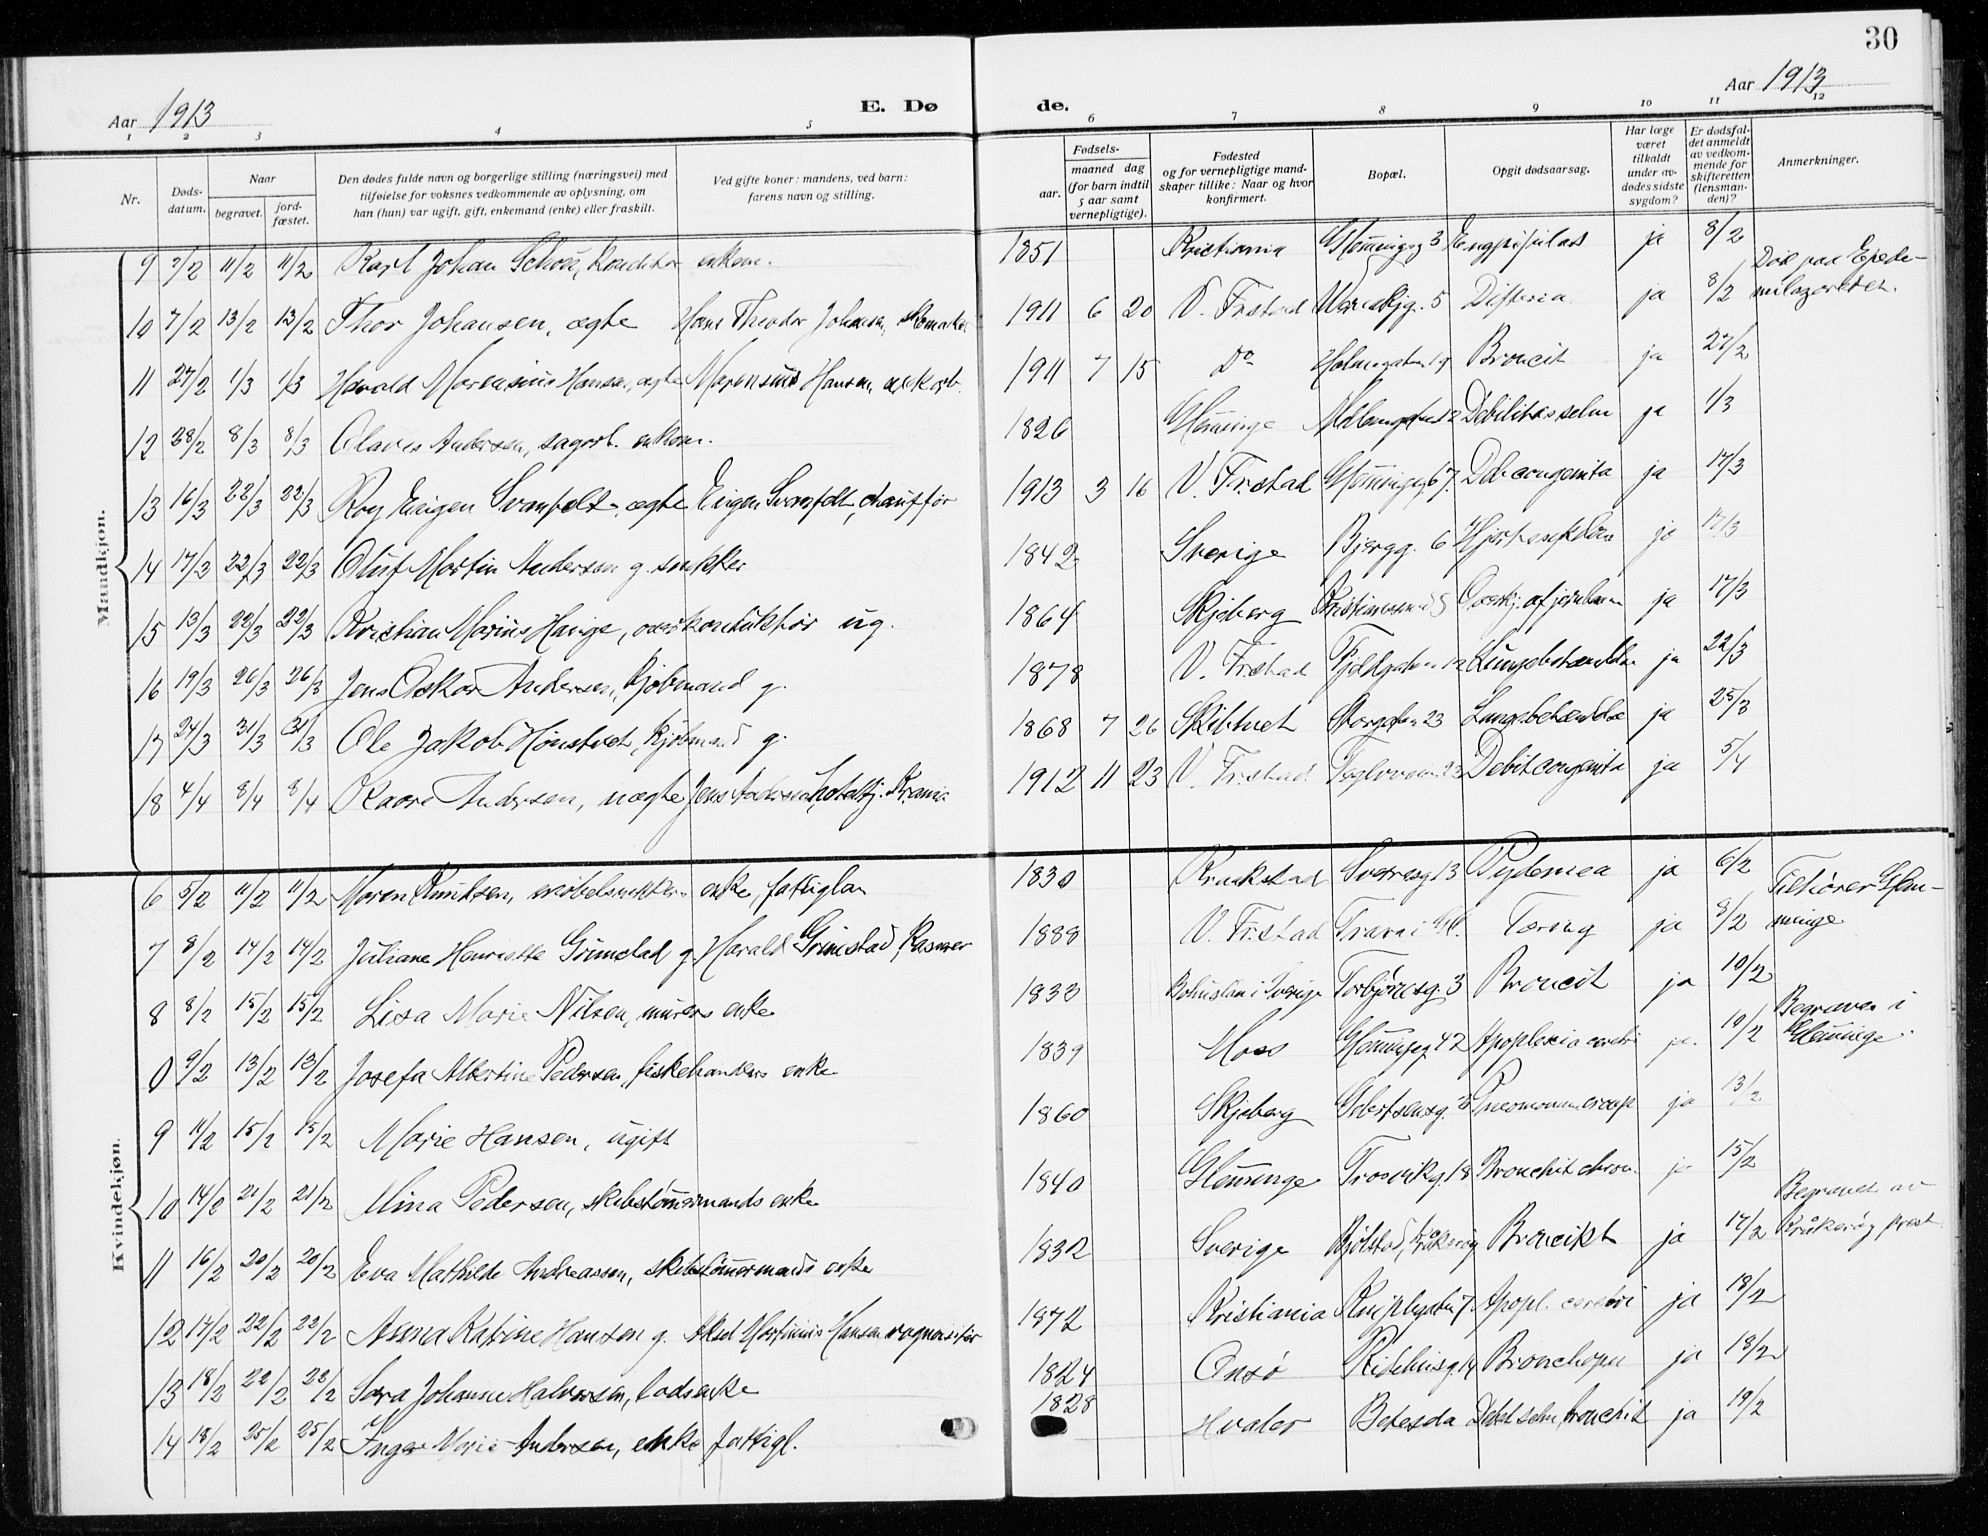 30
Aar 1913
E. Dø
de.
Aar 1913
1 2 3 4 5 6 7 8 9 10 11 12
Nr.
Døds-
datum.
Naar
begravet.
jord-
fæstet.
Den dødes fulde navn og borgerlige stilling (næringsvei) med
tilføielse for voksnes vedkommende av oplysning, om
han (hun) var ugift, gift, enkemand (enke) eller fraskilt.
Ved gifte koner: mandens, ved barn:
farens navn og stilling.
Fødsels-
aar.
maaned dag
(for barn indtil
5 aar samt
vernepligtige).
Fødested
og for vernepligtige mand-
skaper tillike: Naar og hvor
konfirmert.
Bopæl.
Opgit dødsaarsag.
Har læge
været
tilkaldt
under av-
dødes sidste
sygdom?
Er dødsfal-
det anmeldt
av vedkom-
mende for
skifteretten
(lensman-
den)?
Anmerkninger.
Mandkjøn.
9 7/2 11/2 11/2 Karl Johan Schou, konditor enkem. 1851 Kristiania Glemmingeg 3 ja 8/2
10 7/2 13/2 13/2 Thor Johansen, ægte Hans Theodor Johansen, 1911 6 20 V. Fr.stad 5 Difteria ja 8/2 Død paa Epede-
milazarettet.
11 27/2 1/3 1/3 Harald Marensius Hansen, ægte Marensius Hansen, 1911 7 15 Do Holmegaten 19 Broncit ja 27/2
12 28/2 8/3 8/3 Olaves Andersen, sagarb. enkem. 1826 Glemminge ja 1/3
13 16/3 22/3 22/3 Roy Eugen Svanfeldt, ægte Eugen Svanfeldt, chauffør 1913 3 16 V. Fr.stad Glemmingeg 67. Deb congenita ja 17/3
14 17/3 22/3 22/3 Oluf Martin Andersen g. snekker 1842 Sverige Bjergg. 6 ja 17/3
15 13/3 22/3 22/3 Kristian Marius Hauge, overkonduktør ug. 1864 Skjeberg Overkj. af jernbanen ja 17/3
16 19/3 26/3 26/3 Jens Oskar Andersen, kjøbmand g. 1878 V. Fr.stad Lungebetændelse ja 22/3
17 24/3 31/3 31/3 Ole Jakob Hønstvet, kjøbmand g. 1868 7 26 Skibtvet Storgaten 23 Lungebetændelse ja 25/3
18 4/4 8/4 8/4 Kaare Andersen, uægte Jens Andersen, 1912 11 23 V. Fr.stad Debit congenita ja 5/4
Kvindekjøn.
6 5/2 11/2 11/2 Maren Knutsen, møbelsnekker- enke, fattiglem 1830 Kraakstad Sverresg 13 ja 6/2 Tilhører Glem-
minge
7 8/2 14/2 14/2 Juliane Henriette Grimstad g. Harald Grimstad, 1888 V. Fr.stad Tæring ja 8/2
8 8/2 15/2 15/2 Lisa Marie Nilsen, murers enke 1833 Bohuslän i Sverige Torbjørnsg. 3 Broncit ja 10/2
0 9/2 13/2 13/2 Josefa Albertine Pedersen, fiskehandlers enke 1839 Moss Glemmingeg 42 Apoplexia cerebri ja 10/2 Begraven i
Glemminge.
9 11/2 15/2 15/2 Marie Hansen, ugift 1860 Skjeberg ja 13/2
10 14/2 21/2 21/2 Mina Pedersen, skibstømmermands enke 1840 Glemminge Trosvikg. 18 Bronchit chron ja 15/2
11 16/2 20/2 20/2 Eva Mathilde Andreassen, skibstømmermands enke 1832 Sverige Bjølstad, Kråkerøy Broncikt ja 17/2 Begravet av
Kråkerøy prest
12 17/2 22/2 22/2 Anna Katrine Hansen g. Aksel Martinius Hansen vognvisitør 1872 Kristiania Apopl. cerebri ja 18/2
13 18/2 22/2 22/2 Sara Johanne Halvorsen, losenke 1824 Onsø 14 Bronchopn ja 18/2
14 18/2 25/2 25/2 Inger Marie Andersen, enke fattigl. 1828 Hvaler Betesda Debil selm, bronchit ja 19/2